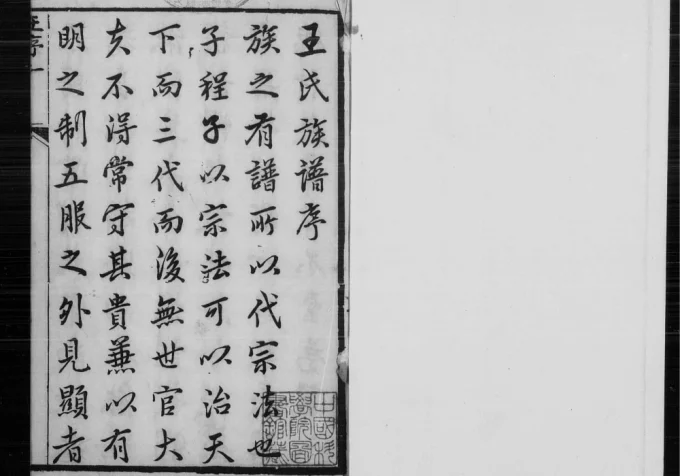 王氏族譜序
族之有譜所以代宗法也
子程子以宗法可以治天
下而三代而後無世官大
夫不得常守其貴蕪以有
明之制五服之外見顯者
序一